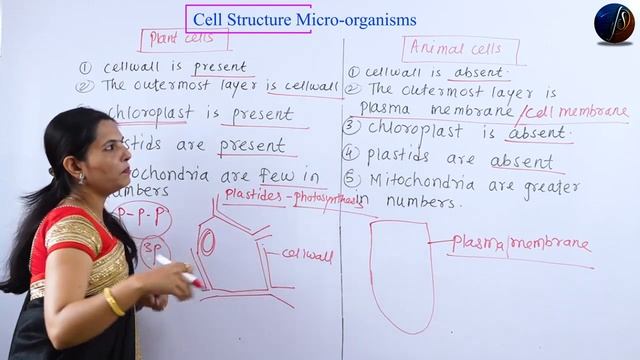 Cell Structure Micro-organisms
Plant cells
① cellwall is present
② The outermost layer is cellwall
chloroplast is present
plastids are present
mitochondria are few in
numbers
Plastides - photosynthesis
P-P-P
3P
cellwall
Animal cells
① cellwall is absent.
② The outermost layer is
plasma membrane/cell membrane
③ chloroplast is absent.
④ plastids are absent
⑤ Mitochondria are greater
in numbers.
plasma/membrane